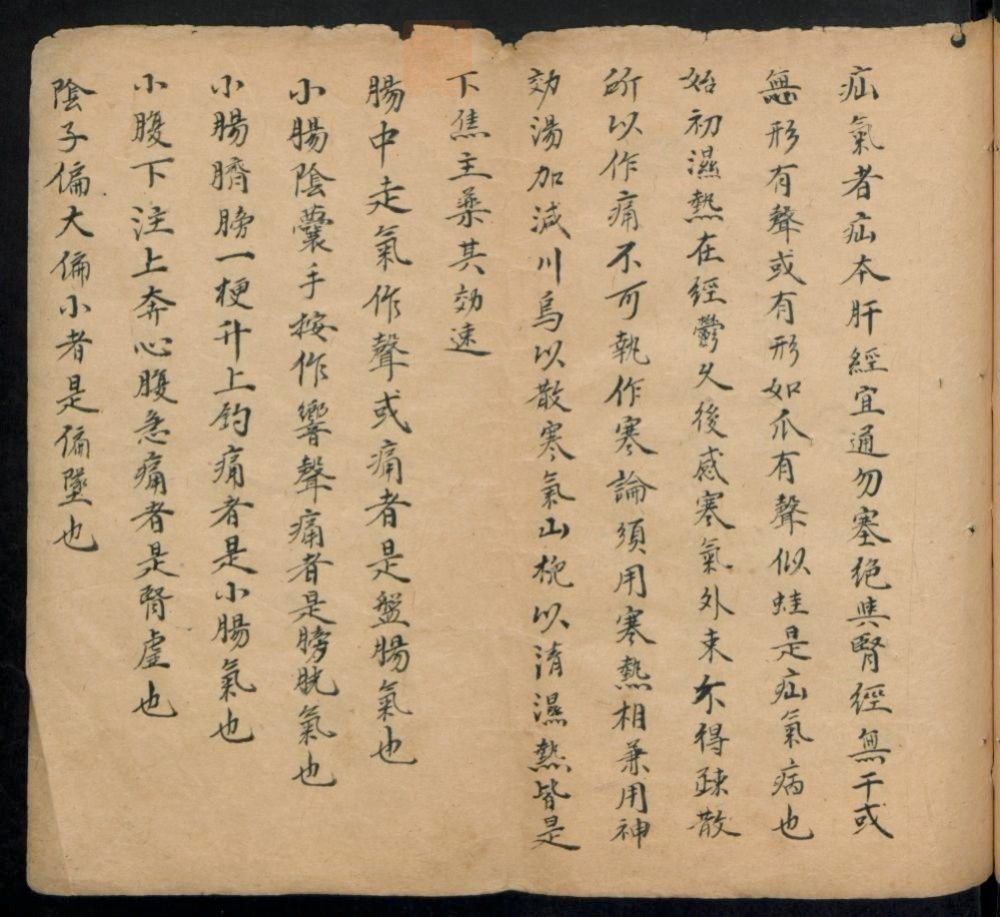 疝氣者疝本肝經宜通勿塞絕與腎經無干或
無形有聲或有形如瓜有聲似蛙是疝氣病也
始初濕熱在經鬱久後感寒氣外束不得疎散
所以作痛不可執作寒論須用寒熱相兼用神
効湯加減川烏以散寒氣山梔以清濕熱皆是
下焦主藥其効速
腸中走氣作聲或痛者是盤腸氣也
小腸陰囊手按作響聲痛者是膀胱氣也
小腸臍膀一梗升上釣痛者是小腸氣也
小腹下注上奔心腹急痛者是腎虛也
陰子偏大偏小者是偏墜也